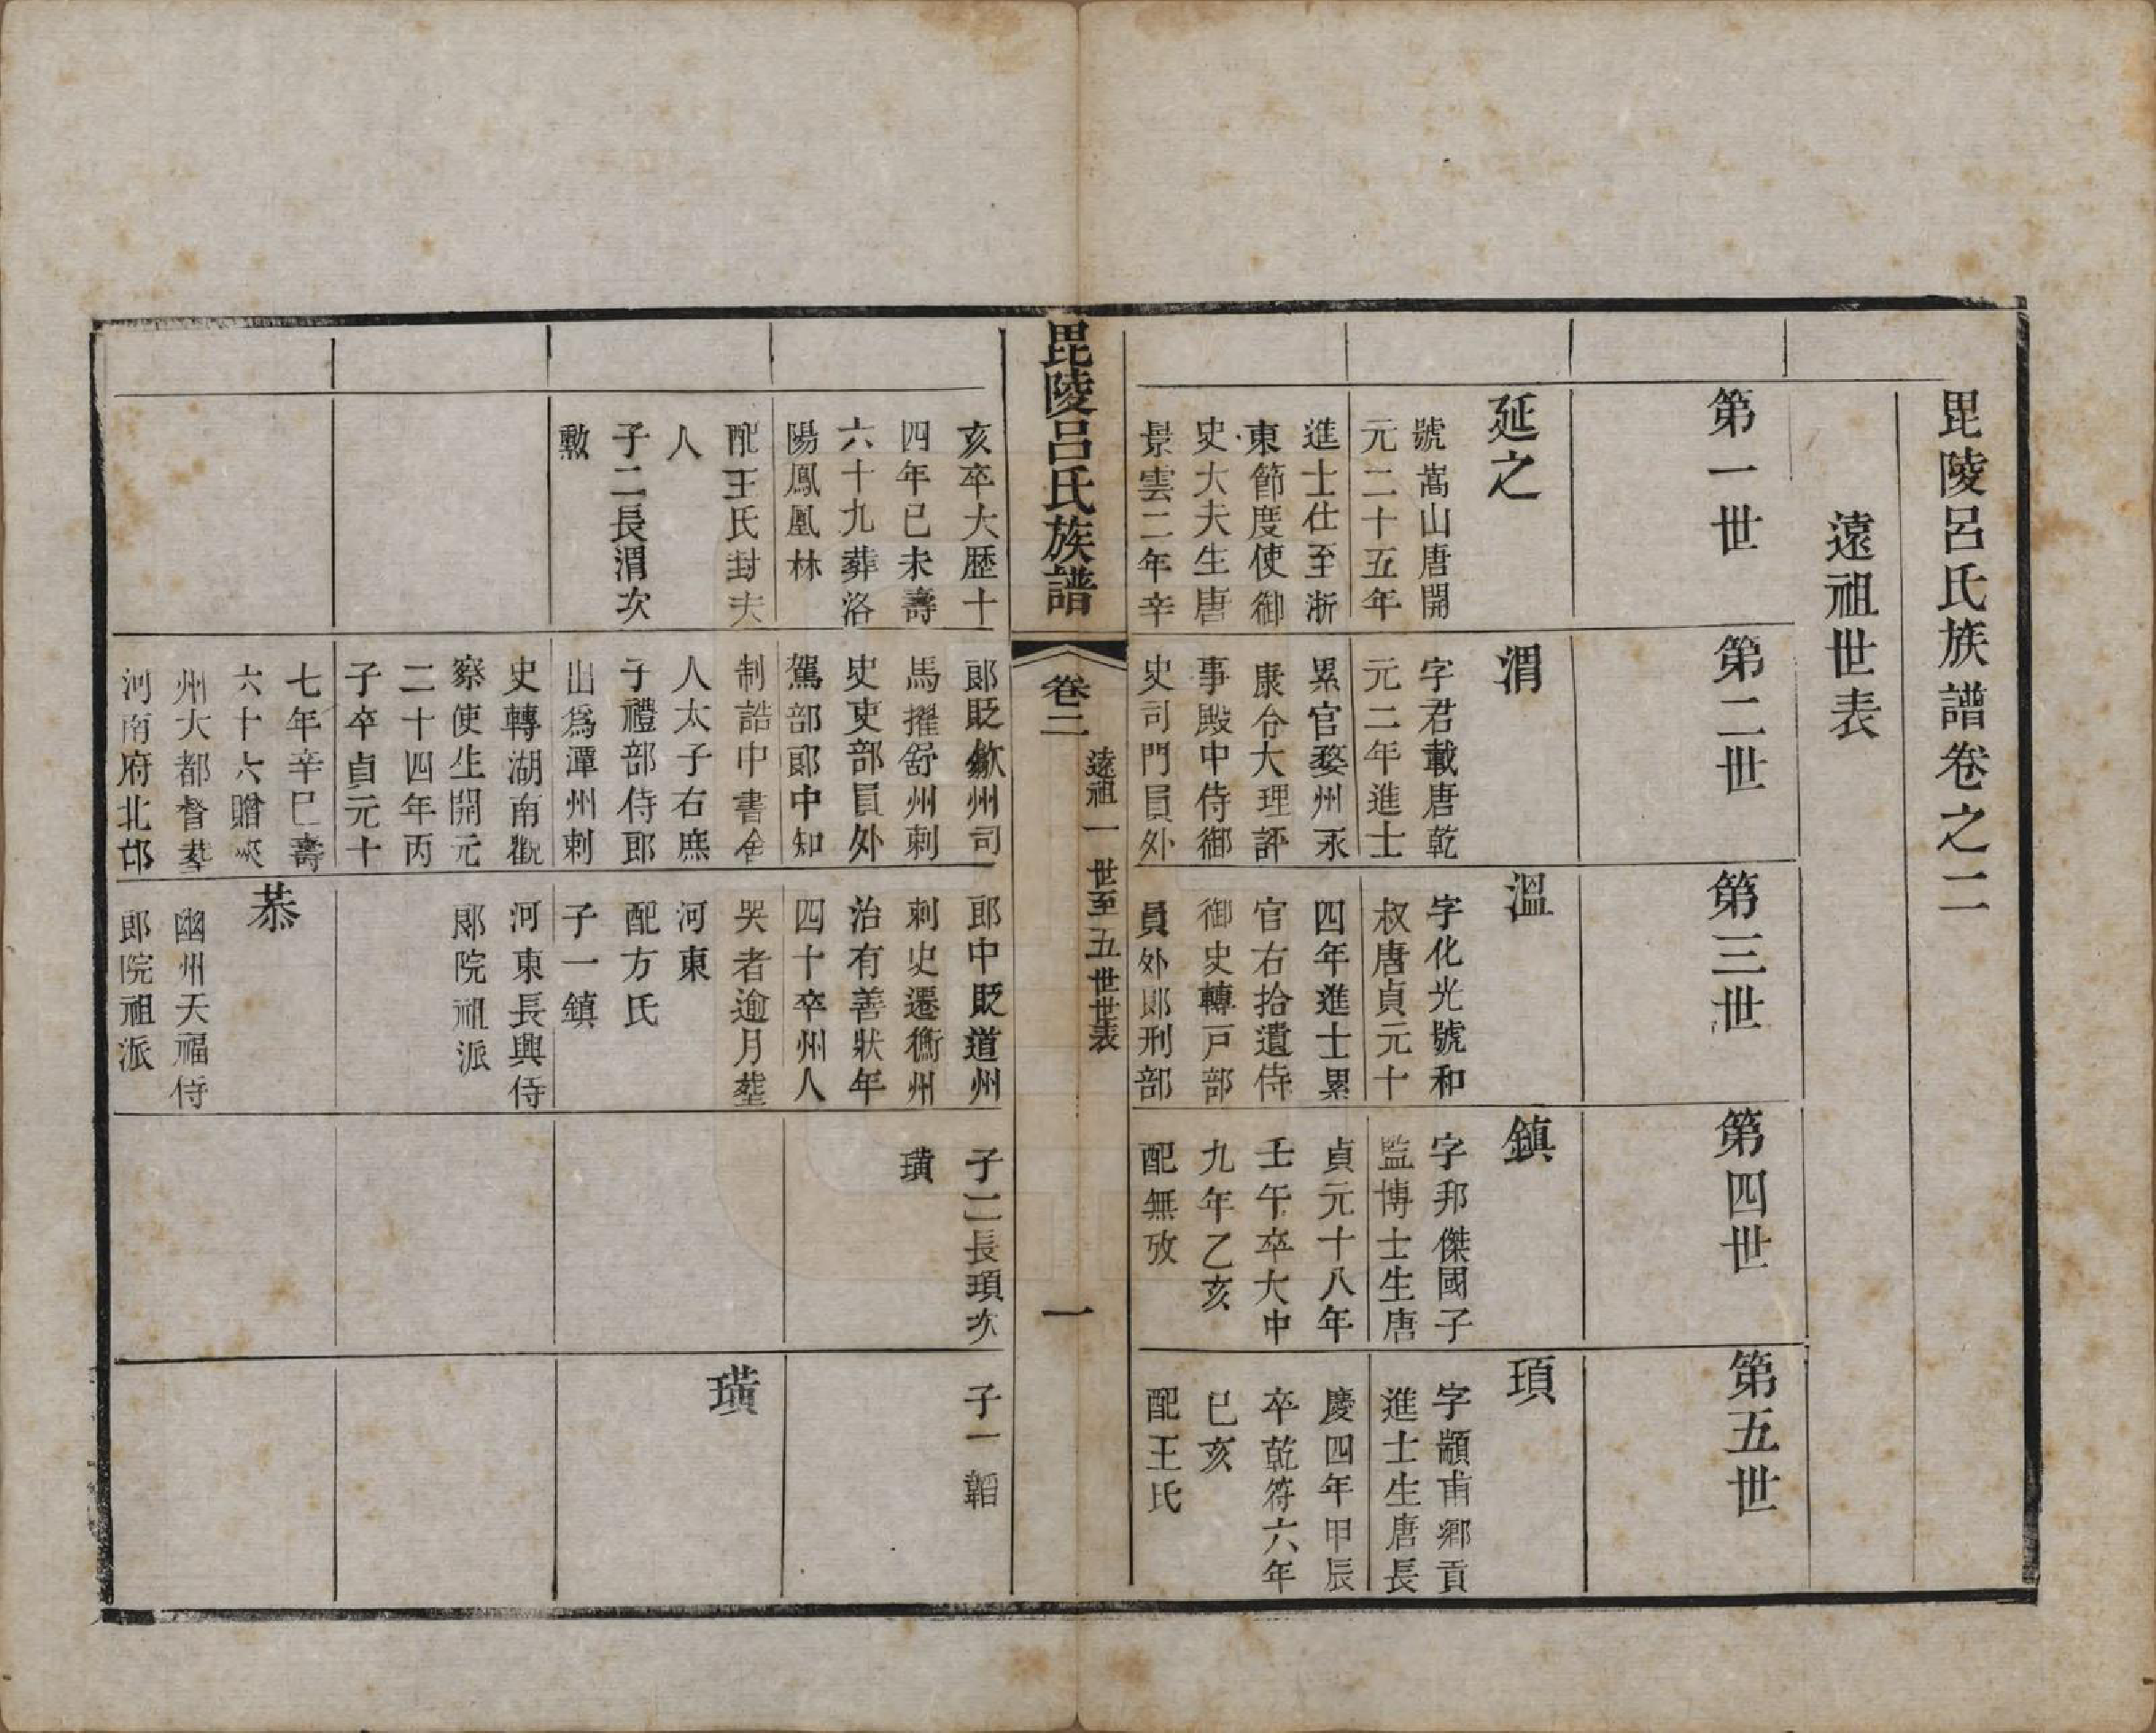 毘陵呂氏族譜卷之二
遠祖世表
第一世
延之
號嵩山唐開
元二十五年
進士仕至浙
東節度使御
史大夫生唐
景雲二年辛
亥卒大歷十
四年已未壽
六十九葬洛
陽鳳凰林
配王氏封夫
人
子二長渭次
勲
第二世
渭
字君載唐乾
元二年進士
累官婺州永
康令大理評
事殿中侍御
史司門員外
郎貶歙州司
馬擢舒州刺
史吏部員外
駕部郎中知
制誥中書舍
人太子右庶
子禮部侍郎
出爲潭州刺
史轉湖南觀
察使生開元
二十四年丙
子卒貞元十
七年辛巳壽
六十六贈陝
州大都督葬
河南府北邙
第三世
溫
字化光號和
叔唐貞元十
四年進士累
官右拾遺侍
御史轉戸部
員外郎刑部
郎中貶道州
刺史遷衡州
治有善狀年
四十卒州人
哭者逾月塟
河東
配方氏
子一鎮
河東長興侍
郎院祖派
恭
幽州天福侍
郎院祖派
第四世
鎮
字邦傑國子
監博士生唐
貞元十八年
壬午卒大中
九年乙亥
配無攷
子二長頊次
璜
第五世
頊
字顓甫鄉貢
進士生唐長
慶四年甲辰
卒乾符六年
已亥
配王氏
子一韜
璜
毘陵呂氏族譜
卷二
遠祖一世至五世世表
一